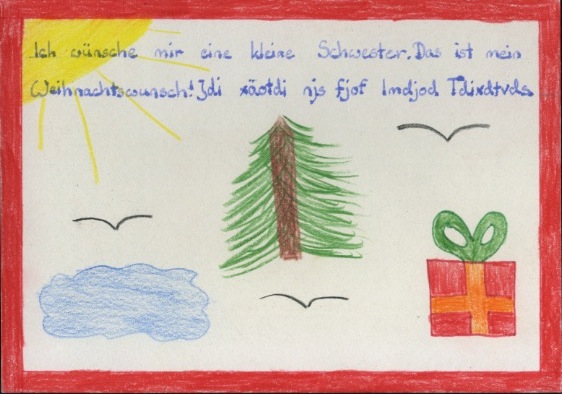 Ich wünsche mir eine kleine Schwester. Das ist mein
Weihnachtswunsch! Jdi xäotdi njs fjof lmdjod Tdixdtvds